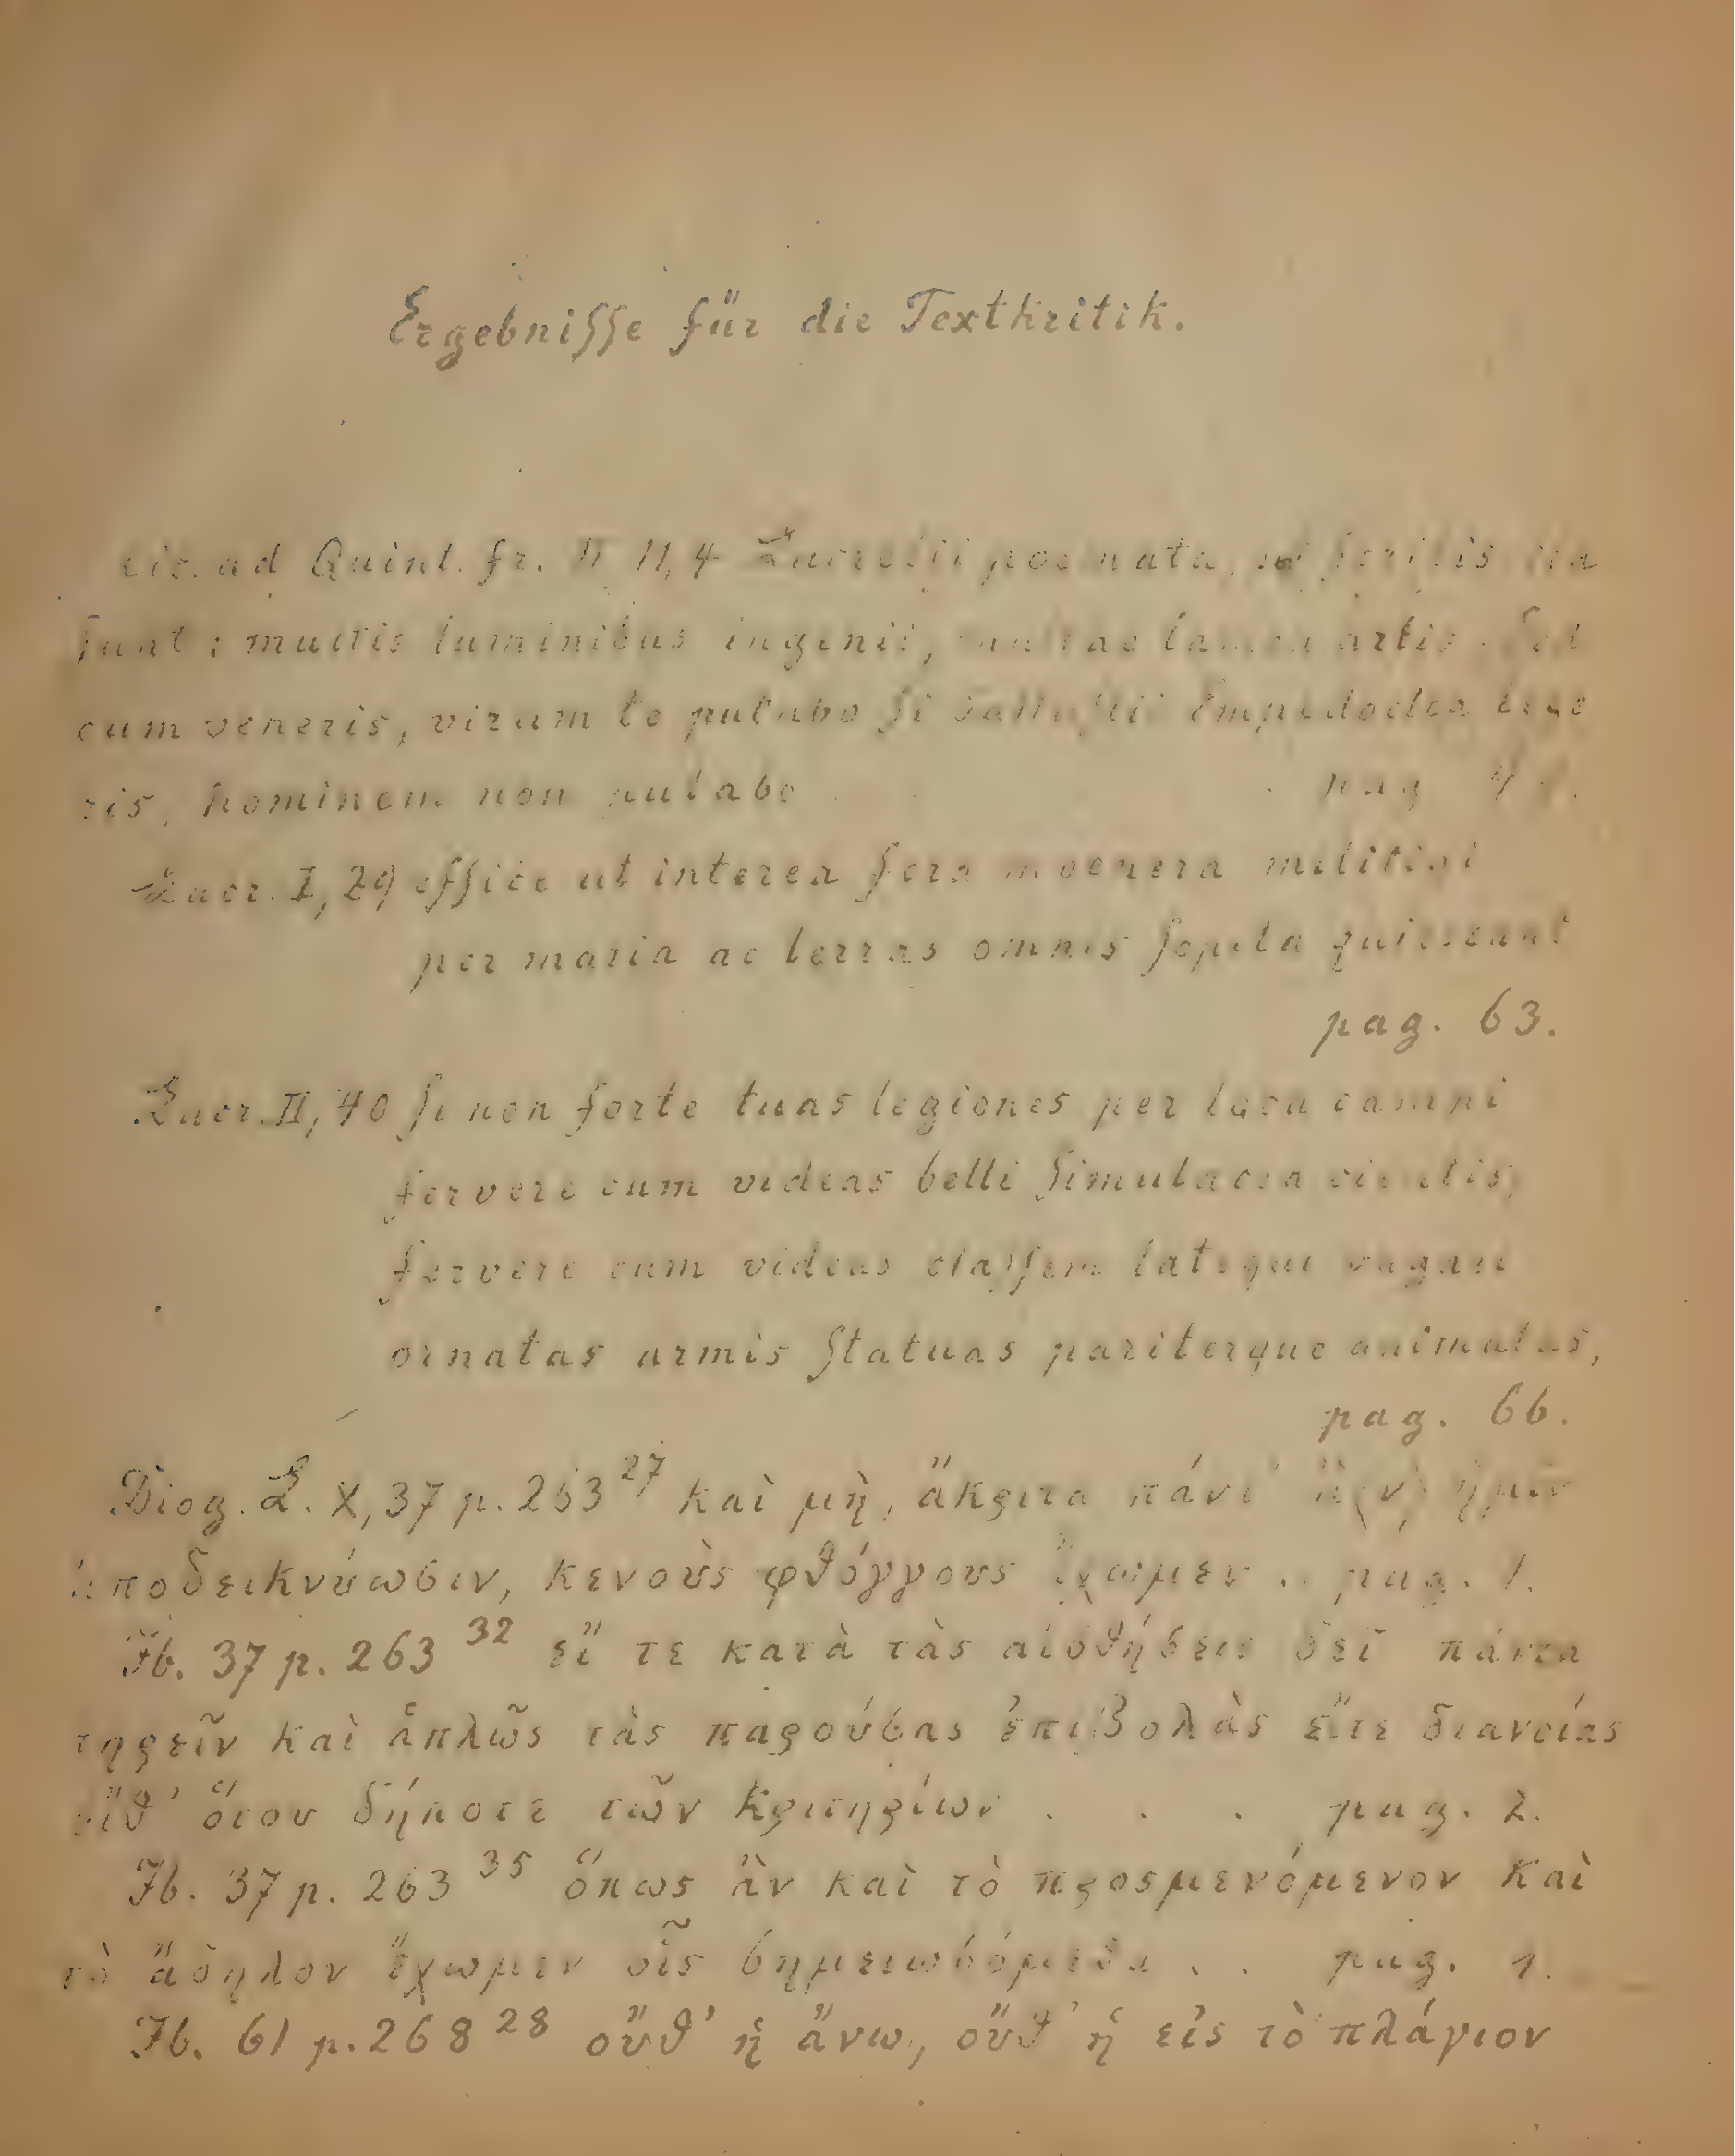 Ergebnisse für die Textkritik.
Cic. ad Quint. fr. II 11,4 Lucretii poemata, ut scribis ita
sunt: multis luminibus ingenii, multae tamen artis. Sed
cum veneris, virum te putabo si Sallustii Empedoclea lege
ris, hominem non putabo . . . pag
Lucr. I, 29 effice ut interea fera moenera militiai
per maria ac terras omnis sopita quiescant
pag. 63.
Lucr. II, 40 si non forte tuas legiones per loca campi
fervere cum videas belli simulacra cientis,
fervere cum videas classem lateque vagari
ornatas armis statuas pariterque animatas,
pag. 66.
Diog. L. X, 37 p. 263 27 καὶ μὴ, ἄκριτα πάνθ' ἃ(ν) ἡμῖν
ἀποδεικνύωσιν, κενοὺς φθόγγους ἔχωμεν .. pag. 1.
Ib. 37 p. 263 32 εἴ τε κατὰ τὰς αἰσθήσεις δεῖ πάντα
τηρεῖν καὶ ἁπλῶς τὰς παρούσας ἐπιβολὰς εἴτε διανοίας
εἴθ' ὅτου δήποτε τῶν κριτηρίων . . . pag. 2.
Ib. 37 p. 263 35 ὅπως ἂν καὶ τὸ προσμενόμενον καὶ
τὸ ἄδηλον ἔχωμεν οἷς σημειωσόμεθα . . pag. 1.
Ib. 61 p. 268 28 οὔθ' ἡ ἄνω, οὔθ' ἡ εἰς τὸ πλάγιον